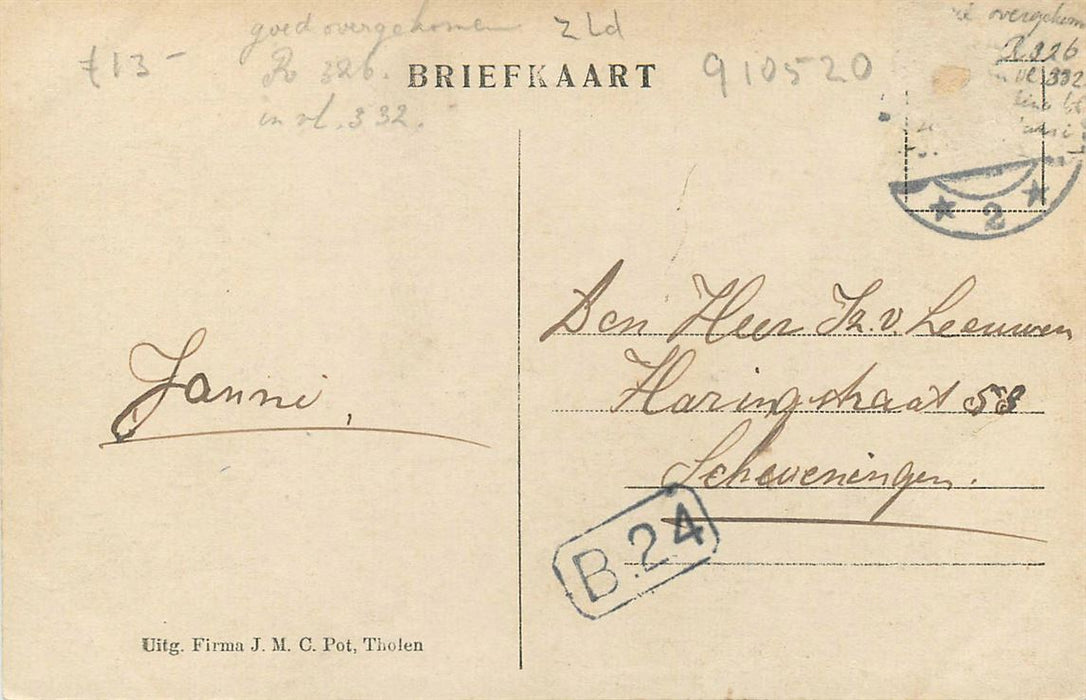 goed overgekomen
Zld
f 13 -
R 326.
BRIEFKAART
910520
in vl. 332.
overgekom
R 326
in vl. 332
2
Den Heer K. v Leeuwen
Haringstraat 53
Scheveningen.
Janni,
B.24
Uitg. Firma J. M. C. Pot, Tholen